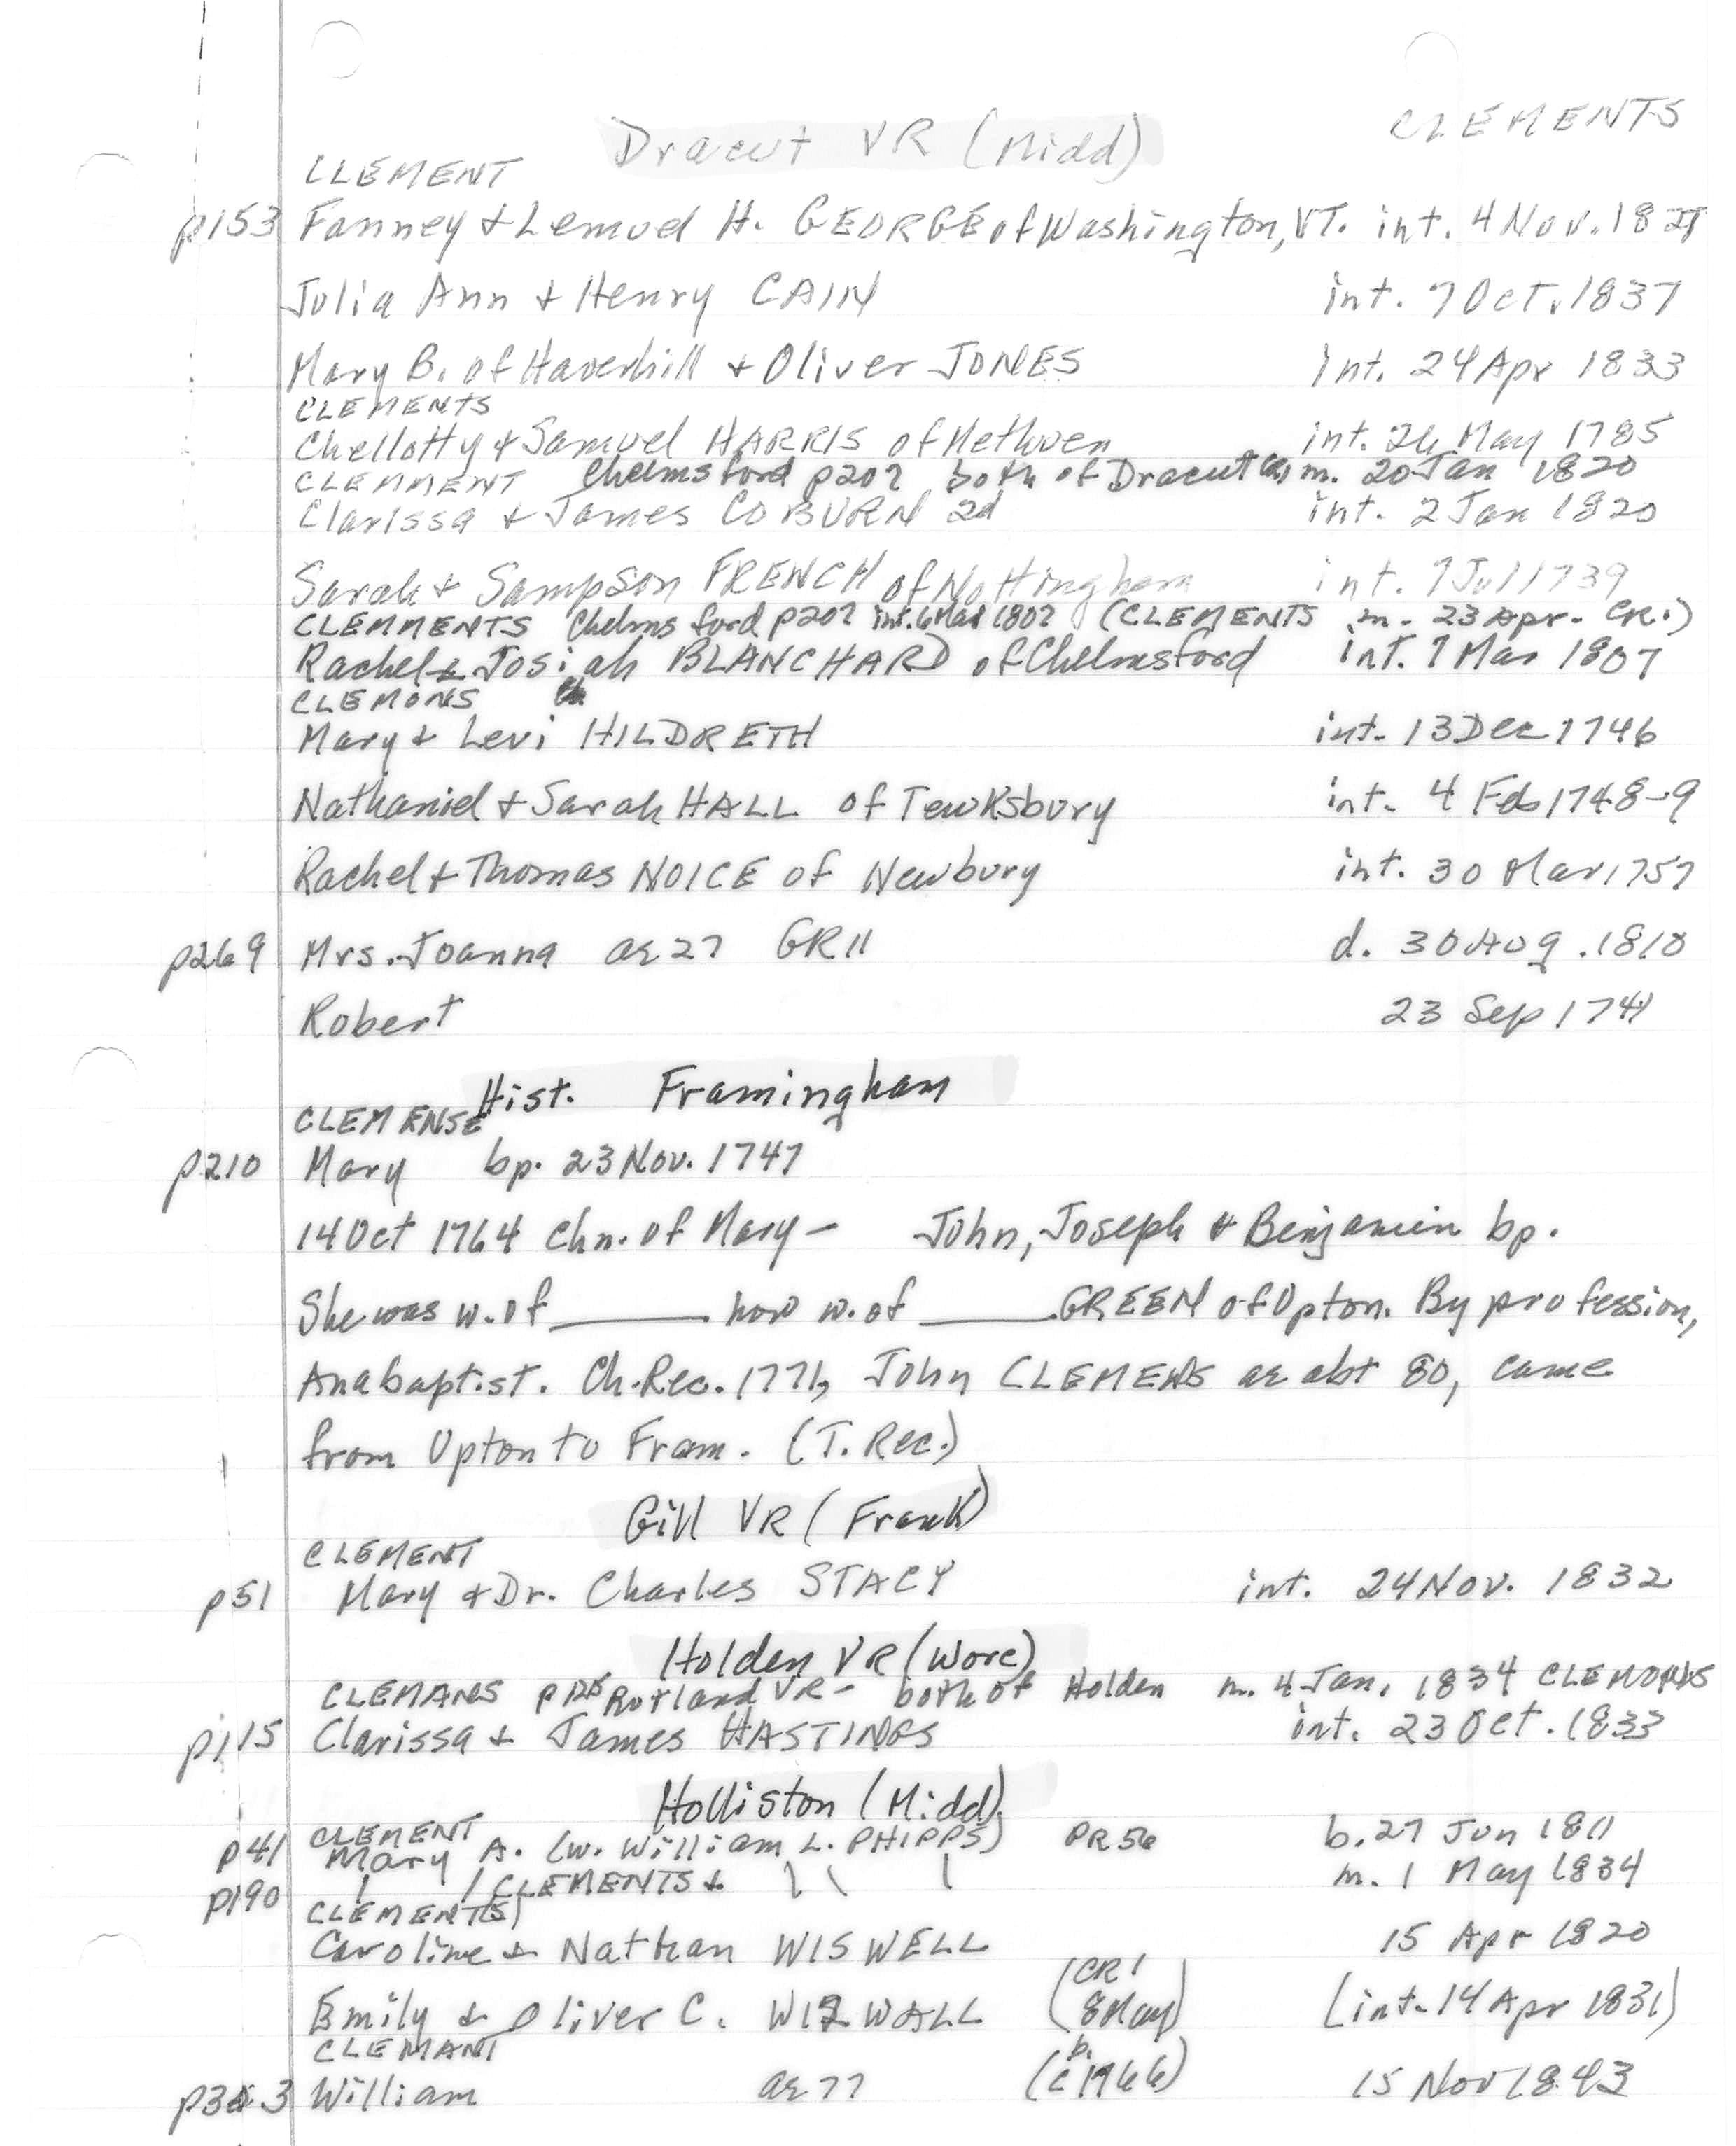 CLEMENTS
Dracut VR (Midd)
CLEMENT
p153 Fanney & Lemuel H. GEORGE of Washington, VT. int. 4 Nov. 18
Julia Ann & Henry CAIN int. 7 Oct. 1837
Mary B. of Haverhill & Oliver JONES Int. 24 Apr 1833
CLEMENTS
Chellotty & Samuel HARRIS of Methven int. 26 May 1785
CLEMMENT Chelmsford p207 both of Dracut m. 20 Jan 1820
Clarissa & James COBURN 2d int. 2 Jan 1820
Sarah & Sampson FRENCH of Nottingham int. 7 Jul 1739
CLEMMENTS Chelmsford p207 int. 6 Mar 1807 (CLEMENTS m. 23 Apr. CR1)
Rachel & Josiah BLANCHARD of Chelmsford int. 7 Mar 1807
CLEMONS
Mary & Levi HILDRETH int. 13 Dec 1746
Nathaniel & Sarah HALL of Tewksbury int. 4 Feb 1748-9
Rachel & Thomas NOICE of Newbury int. 30 Mar 1757
p269 Mrs. Joanna ae 27 GR11 d. 30 Aug. 1810
Robert 23 Sep 1741
Hist. Framingham
CLEMENSE
p210 Mary bp. 23 Nov. 1747
14 Oct 1764 Chn. of Mary - John, Joseph & Benjamin bp.
She was w. of ______ now w. of ______ GREEN of Upton. By profession,
Anabaptist. Ch. Rec. 1771, John CLEMENS ae abt 80, came
from Upton to Fram. (T. Rec.)
Gill VR (Frank)
CLEMENT
p51 Mary & Dr. Charles STACY int. 24 Nov. 1832
Holden VR (Worc)
CLEMANS Rutland VR - both of Holden m. 4 Jan. 1834 CLEMONS
p115 Clarissa & James HASTINGS int. 23 Oct. 1833
Holliston (Midd)
CLEMENT
p41 Mary A. (w. William L. PHIPPS) PR56 b. 27 Jun 1811
p190 CLEMENTS & m. 1 May 1834
CLEMENT(S)
Caroline & Nathan WISWELL 15 Apr 1820
Emily & Oliver C. WISWALL (CR1 8 May) (int. 14 Apr 1831)
CLEMANT
William ae 77 15 Nov 1843